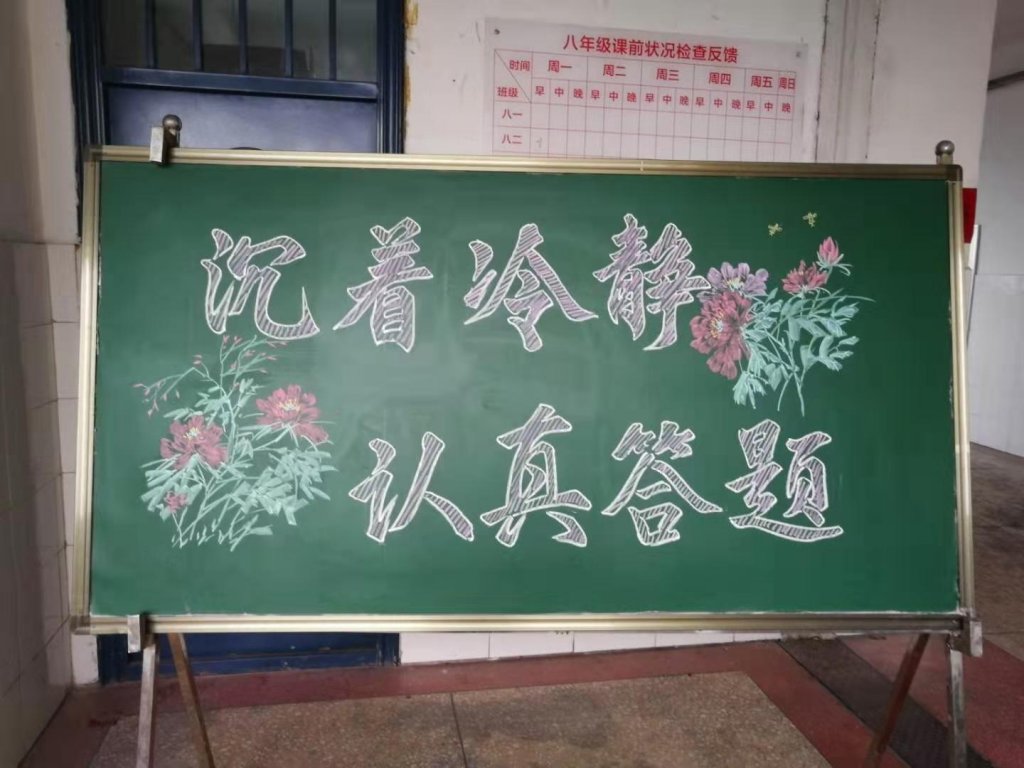 八年级课前状况检查反馈
时间 周一 周二 周三 周四 周五 周日
班级 早 中 晚 早 中 晚 早 中 晚 早 中 晚 早 中 晚
八一
八二
沉着冷静
认真答题